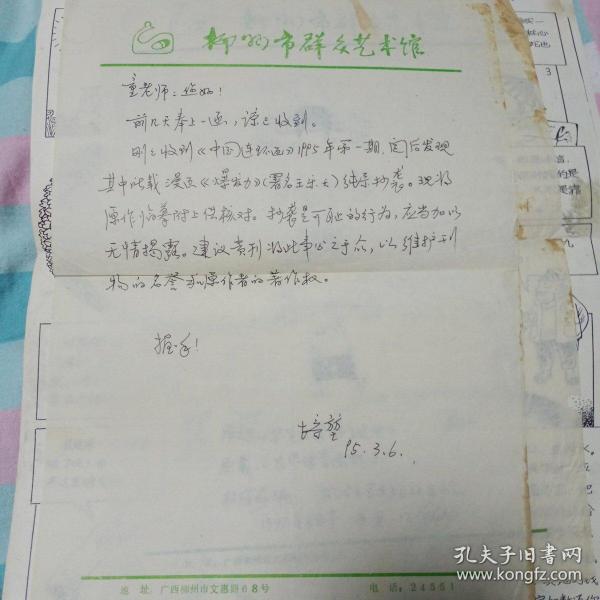 柳州市群众艺术馆
童老师：您好！
前几天奉上一函，谅已收到。
刚刚收到《中国连环画》1995年第一期，阅后发现
其中所载漫画《爆发力》（署名王乐天）纯系抄袭。现将
原作临摹附上供核对。抄袭是可耻的行为，应当加以
无情揭露。建议贵刊将此事公之于众，以维护刊
物的名誉和原作者的著作权。
握手！
95.3.6.
地址：广西柳州市文惠路68号 电话：24551
孔夫子旧书网
www.kongfz.com